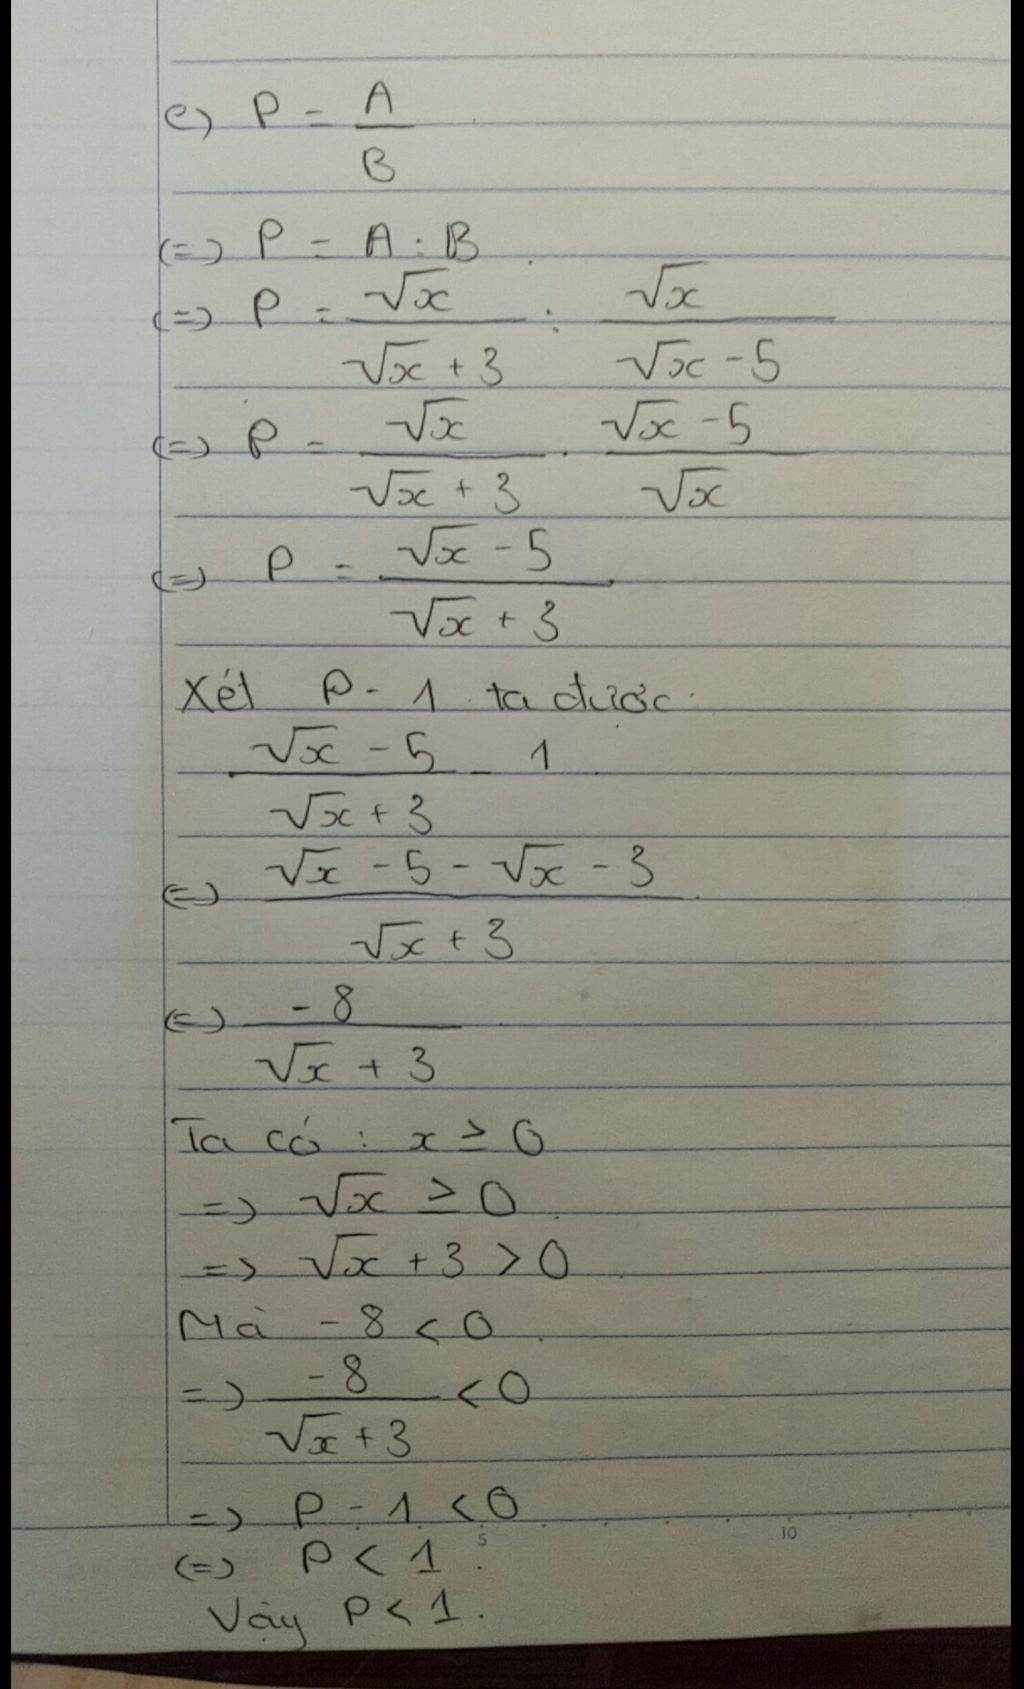 c) P = A/B
(=) P = A : B
(=) P = √x/(√x + 3) : √x/(√x - 5)
(=) P = √x/(√x + 3) . (√x - 5)/√x
(=) P = (√x - 5)/(√x + 3)
Xét P - 1 ta được
(√x - 5)/(√x + 3) - 1
(=) (√x - 5 - √x - 3)/(√x + 3)
(=) -8/(√x + 3)
Ta có : x ≥ 0
=> √x ≥ 0
=> √x + 3 > 0
Mà -8 < 0
=> -8/(√x + 3) < 0
=> P - 1 < 0
5 10
(=) P < 1
Vậy P < 1.